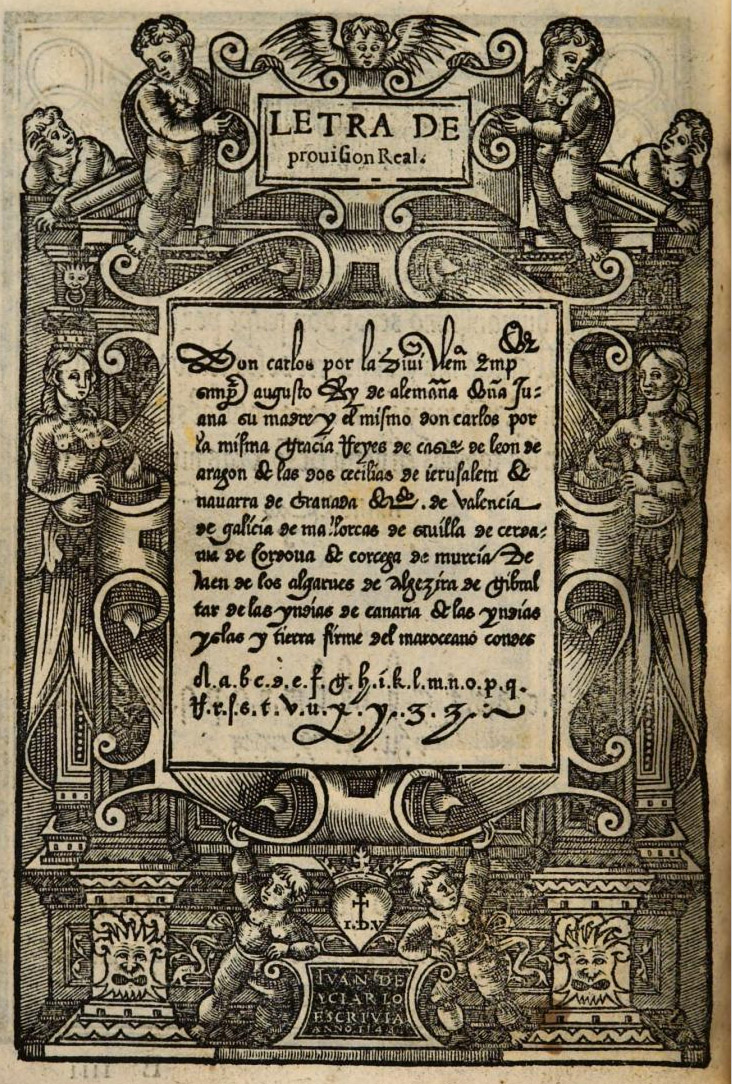 LETRA DE
prouision Real.
Don carlos por la diui
augusto Rey de alemaña doña Ju-
ana su madre y el mismo don carlos por
la misma gracia Reyes de de leon de
aragon & las dos cecilias de ierusalem &
nauarra de Granada . de valencia
de galicia de mallorcas de seuilla de cerda-
nia de Cordoua & corcega de murcia De
Iaen de los algarues de Algezira de Gibral
tar de las yndias de canaria & las yndias
yslas y tierra firme del maroceano condes
A.a.b.c.d.e.f.g.h.i.k.l.m.n.o.p.q.
R.r.s.s.t.v.u.x.y.3.3.
I.D.V
IVAN DE
YCIAR LO
ESCRIVIA
ANNO